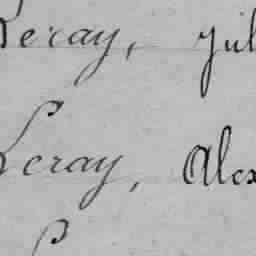 Leray, Jul
Leray, Alex